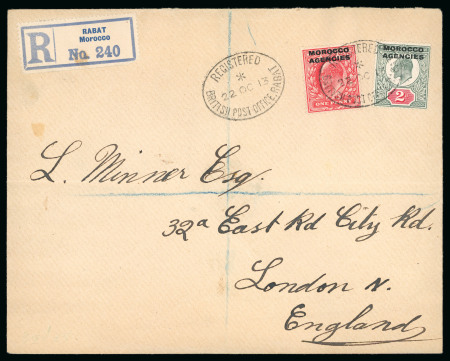 R
RABAT
Morocco
No. 240
REGISTERED
22 OC 13
BRITISH POST OFFICE, RABAT
MOROCCO
AGENCIES
MOROCCO
AGENCIES
2
L. Minner Esq.
32a East Rd City Rd.
London N.
England